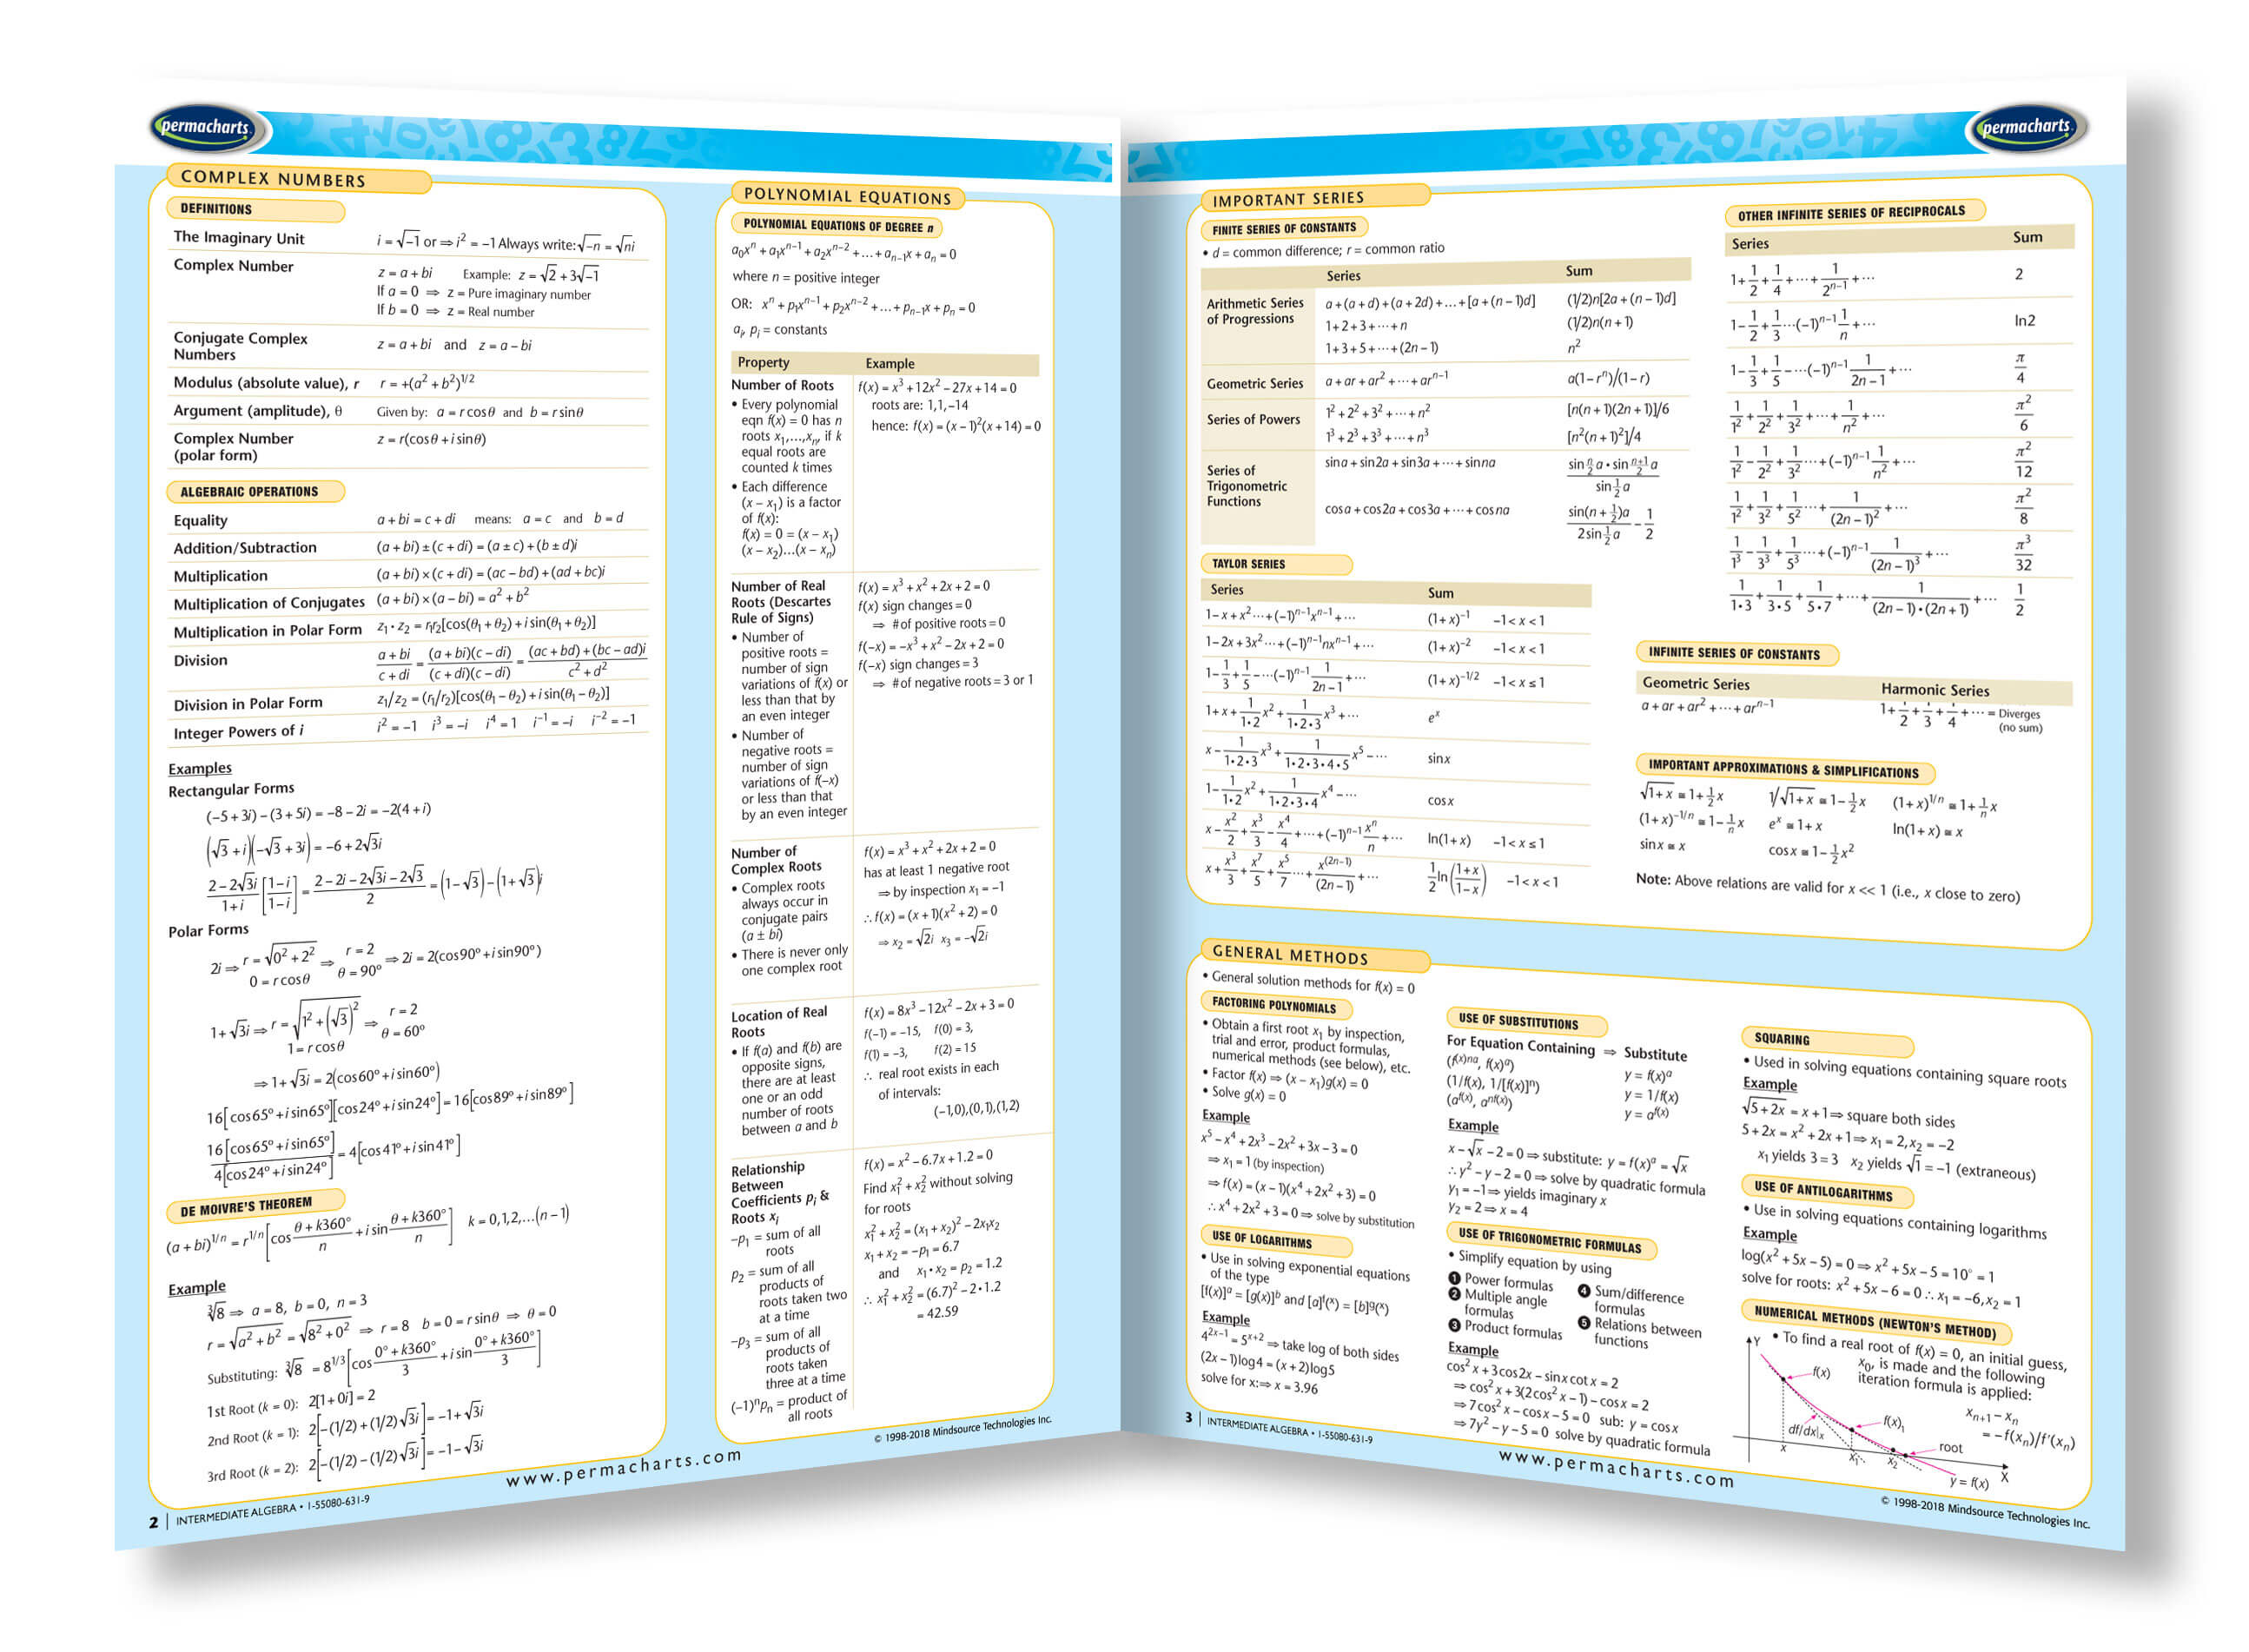 permacharts.
COMPLEX NUMBERS
DEFINITIONS
The Imaginary Unit i = √−1 or ⇒ i² = −1 Always write: √−n = √ni
Complex Number z = a + bi Example: z = √2 + 3√−1
If a = 0 ⇒ z = Pure imaginary number
If b = 0 ⇒ z = Real number
Conjugate Complex
Numbers z = a + bi and z = a − bi
Modulus (absolute value), r r = +(a² + b²)^1/2
Argument (amplitude), θ Given by: a = r cosθ and b = r sinθ
Complex Number z = r(cosθ + i sinθ)
(polar form)
ALGEBRAIC OPERATIONS
Equality a + bi = c + di means: a = c and b = d
Addition/Subtraction (a + bi) ± (c + di) = (a ± c) + (b ± d)i
Multiplication (a + bi) × (c + di) = (ac − bd) + (ad + bc)i
Multiplication of Conjugates (a + bi) × (a − bi) = a² + b²
Multiplication in Polar Form z₁ • z₂ = r₁r₂[cos(θ₁ + θ₂) + i sin(θ₁ + θ₂)]
Division (a + bi)/(c + di) = (a + bi)(c − di)/(c + di)(c − di) = (ac + bd) + (bc − ad)i/c² + d²
Division in Polar Form z₁/z₂ = (r₁/r₂)[cos(θ₁ − θ₂) + i sin(θ₁ − θ₂)]
Integer Powers of i i² = −1 i³ = −i i⁴ = 1 i⁻¹ = −i i⁻² = −1
Examples
Rectangular Forms
(−5 + 3i) − (3 + 5i) = −8 − 2i = −2(4 + i)
(√3 + i)(−√3 + 3i) = −6 + 2√3i
(2 − 2√3i)/(1 + i) [(1 − i)/(1 − i)] = (2 − 2i − 2√3i − 2√3)/2 = (1 − √3) − (1 + √3)i
Polar Forms
2i ⇒ r = √0² + 2² ⇒ r = 2 ⇒ 2i = 2(cos90° + i sin90°)
0 = r cosθ θ = 90°
1 + √3i ⇒ r = √1² + (√3)² ⇒ r = 2
1 = r cosθ θ = 60°
⇒ 1 + √3i = 2(cos60° + i sin60°)
16[cos65° + i sin65°][cos24° + i sin24°] = 16[cos89° + i sin89°]
16[cos65° + i sin65°]/4[cos24° + i sin24°] = 4[cos41° + i sin41°]
DE MOIVRE'S THEOREM
(a + bi)^1/n = r^1/n [cos (θ + k360°)/n + i sin (θ + k360°)/n] k = 0,1,2,...(n − 1)
Example
∛8 ⇒ a = 8, b = 0, n = 3
r = √a² + b² = √8² + 0² ⇒ r = 8 b = 0 = r sinθ ⇒ θ = 0
Substituting: ∛8 = 8^1/3 [cos (0° + k360°)/3 + i sin (0° + k360°)/3]
1st Root (k = 0): 2[1 + 0i] = 2
2nd Root (k = 1): 2[−(1/2) + (1/2)√3i] = −1 + √3i
3rd Root (k = 2): 2[−(1/2) − (1/2)√3i] = −1 − √3i
2 | INTERMEDIATE ALGEBRA • 1-55080-631-9
www.permacharts.com
POLYNOMIAL EQUATIONS
POLYNOMIAL EQUATIONS OF DEGREE n
a₀xⁿ + a₁xⁿ⁻¹ + a₂xⁿ⁻² + ... + aₙ₋₁x + aₙ = 0
where n = positive integer
OR: xⁿ + p₁xⁿ⁻¹ + p₂xⁿ⁻² + ... + pₙ₋₁x + pₙ = 0
aᵢ, pᵢ = constants
Property Example
Number of Roots
• Every polynomial
eqn f(x) = 0 has n
roots x₁,...,xₙ, if k
equal roots are
counted k times
• Each difference
(x − x₁) is a factor
of f(x):
f(x) = 0 = (x − x₁)
(x − x₂)...(x − xₙ)
f(x) = x³ + 12x² − 27x + 14 = 0
roots are: 1,1,−14
hence: f(x) = (x − 1)²(x + 14) = 0
Number of Real
Roots (Descartes
Rule of Signs)
• Number of
positive roots =
number of sign
variations of f(x) or
less than that by
an even integer
• Number of
negative roots =
number of sign
variations of f(−x)
or less than that
by an even integer
f(x) = x³ + x² + 2x + 2 = 0
f(x) sign changes = 0
⇒ # of positive roots = 0
f(−x) = −x³ + x² − 2x + 2 = 0
f(−x) sign changes = 3
⇒ # of negative roots = 3 or 1
Number of
Complex Roots
• Complex roots
always occur in
conjugate pairs
(a ± bi)
• There is never only
one complex root
f(x) = x³ + x² + 2x + 2 = 0
has at least 1 negative root
⇒ by inspection x₁ = −1
∴ f(x) = (x + 1)(x² + 2) = 0
⇒ x₂ = √2i x₃ = −√2i
Location of Real
Roots
• If f(a) and f(b) are
opposite signs,
there are at least
one or an odd
number of roots
between a and b
f(x) = 8x³ − 12x² − 2x + 3 = 0
f(−1) = −15, f(0) = 3,
f(1) = −3, f(2) = 15
∴ real root exists in each
of intervals:
(−1,0),(0,1),(1,2)
Relationship
Between
Coefficients pᵢ &
Roots xᵢ
−p₁ = sum of all
roots
p₂ = sum of all
products of
roots taken two
at a time
−p₃ = sum of all
products of
roots taken
three at a time
(−1)ⁿpₙ = product of
all roots
f(x) = x² − 6.7x + 1.2 = 0
Find x₁² + x₂² without solving
for roots
x₁² + x₂² = (x₁ + x₂)² − 2x₁x₂
x₁ + x₂ = −p₁ = 6.7
and x₁ • x₂ = p₂ = 1.2
∴ x₁² + x₂² = (6.7)² − 2 • 1.2
= 42.59
© 1998-2018 Mindsource Technologies Inc.
permacharts.
IMPORTANT SERIES
FINITE SERIES OF CONSTANTS
• d = common difference; r = common ratio
Series Sum
Arithmetic Series
of Progressions
a + (a + d) + (a + 2d) + ... + [a + (n − 1)d] (1/2)n[2a + (n − 1)d]
1 + 2 + 3 + ··· + n (1/2)n(n + 1)
1 + 3 + 5 + ··· + (2n − 1) n²
Geometric Series a + ar + ar² + ··· + arⁿ⁻¹ a(1 − rⁿ)/(1 − r)
Series of Powers 1² + 2² + 3² + ··· + n² [n(n + 1)(2n + 1)]/6
1³ + 2³ + 3³ + ··· + n³ [n²(n + 1)²]/4
Series of
Trigonometric
Functions
sin a + sin 2a + sin 3a + ··· + sin na (sin n/2 a • sin (n+1)/2 a)/(sin 1/2 a)
cos a + cos 2a + cos 3a + ··· + cos na sin(n + 1/2)a/(2 sin 1/2 a) − 1/2
TAYLOR SERIES
Series Sum
1 − x + x² ··· + (−1)ⁿ⁻¹xⁿ⁻¹ + ··· (1 + x)⁻¹ −1 < x < 1
1 − 2x + 3x² ··· + (−1)ⁿ⁻¹nxⁿ⁻¹ + ··· (1 + x)⁻² −1 < x < 1
1 − 1/3 + 1/5 − ···(−1)ⁿ⁻¹ 1/(2n − 1) + ··· (1 + x)^−1/2 −1 < x ≤ 1
1 + x + 1/(1•2) x² + 1/(1•2•3) x³ + ··· eˣ
x − 1/(1•2•3) x³ + 1/(1•2•3•4•5) x⁵ − ··· sin x
1 − 1/(1•2) x² + 1/(1•2•3•4) x⁴ − ··· cos x
x − x²/2 + x³/3 − x⁴/4 + ··· + (−1)ⁿ⁻¹ xⁿ/n + ··· ln(1 + x) −1 < x ≤ 1
x + x³/3 + x⁷/5 + x⁵/7 ··· + x^(2n−1)/(2n − 1) + ··· 1/2 ln((1 + x)/(1 − x)) −1 < x < 1
OTHER INFINITE SERIES OF RECIPROCALS
Series Sum
1 + 1/2 + 1/4 + ··· + 1/2ⁿ⁻¹ + ··· 2
1 − 1/2 + 1/3 ···(−1)ⁿ⁻¹ 1/n + ··· ln2
1 − 1/3 + 1/5 − ···(−1)ⁿ⁻¹ 1/(2n − 1) + ··· π/4
1/1² + 1/2² + 1/3² + ··· + 1/n² + ··· π²/6
1/1² − 1/2² + 1/3² ··· + (−1)ⁿ⁻¹ 1/n² + ··· π²/12
1/1² + 1/3² + 1/5² ··· + 1/(2n − 1)² + ··· π²/8
1/1³ − 1/3³ + 1/5³ ··· + (−1)ⁿ⁻¹ 1/(2n − 1)³ + ··· π³/32
1/(1•3) + 1/(3•5) + 1/(5•7) + ··· + 1/((2n − 1)•(2n + 1)) + ··· 1/2
INFINITE SERIES OF CONSTANTS
Geometric Series Harmonic Series
a + ar + ar² + ··· + arⁿ⁻¹ 1 + 1/2 + 1/3 + 1/4 + ··· = Diverges
(no sum)
IMPORTANT APPROXIMATIONS & SIMPLIFICATIONS
√1 + x ≅ 1 + 1/2 x 1/√1 + x ≅ 1 − 1/2 x (1 + x)^1/n ≅ 1 + 1/n x
(1 + x)^−1/n ≅ 1 − 1/n x eˣ ≅ 1 + x ln(1 + x) ≅ x
sin x ≅ x cos x ≅ 1 − 1/2 x²
Note: Above relations are valid for x << 1 (i.e., x close to zero)
GENERAL METHODS
• General solution methods for f(x) = 0
FACTORING POLYNOMIALS
• Obtain a first root x₁ by inspection,
trial and error, product formulas,
numerical methods (see below), etc.
• Factor f(x) ⇒ (x − x₁)g(x) = 0
• Solve g(x) = 0
Example
x⁵ − x⁴ + 2x³ − 2x² + 3x − 3 = 0
⇒ x₁ = 1 (by inspection)
⇒ f(x) = (x − 1)(x⁴ + 2x² + 3) = 0
∴ x⁴ + 2x² + 3 = 0 ⇒ solve by substitution
USE OF LOGARITHMS
• Use in solving exponential equations
of the type
[f(x)]ᵃ = [g(x)]ᵇ and [a]^f(x) = [b]^g(x)
Example
4^2x−1 = 5^x+2 ⇒ take log of both sides
(2x − 1)log4 = (x + 2)log5
solve for x: ⇒ x = 3.96
USE OF SUBSTITUTIONS
For Equation Containing ⇒ Substitute
(f(x)^na, f(x)^a) y = f(x)^a
(1/f(x), 1/[f(x)]ⁿ) y = 1/f(x)
(a^f(x), a^nf(x)) y = a^f(x)
Example
x − √x − 2 = 0 ⇒ substitute: y = f(x)^a = √x
∴ y² − y − 2 = 0 ⇒ solve by quadratic formula
y₁ = −1 ⇒ yields imaginary x
y₂ = 2 ⇒ x = 4
USE OF TRIGONOMETRIC FORMULAS
• Simplify equation by using
1 Power formulas
2 Multiple angle
formulas
3 Product formulas
4 Sum/difference
formulas
5 Relations between
functions
Example
cos² x + 3cos2x − sin x cot x = 2
⇒ cos² x + 3(2cos² x − 1) − cos x = 2
⇒ 7cos² x − cos x − 5 = 0 sub: y = cos x
⇒ 7y² − y − 5 = 0 solve by quadratic formula
SQUARING
• Used in solving equations containing square roots
Example
√5 + 2x = x + 1 ⇒ square both sides
5 + 2x = x² + 2x + 1 ⇒ x₁ = 2, x₂ = −2
x₁ yields 3 = 3 x₂ yields √1 = −1 (extraneous)
USE OF ANTILOGARITHMS
• Use in solving equations containing logarithms
Example
log(x² + 5x − 5) = 0 ⇒ x² + 5x − 5 = 10° = 1
solve for roots: x² + 5x − 6 = 0 ∴ x₁ = −6, x₂ = 1
NUMERICAL METHODS (NEWTON'S METHOD)
• To find a real root of f(x) = 0, an initial guess,
x₀, is made and the following
iteration formula is applied:
xₙ₊₁ − xₙ
= −f(xₙ)/f'(xₙ)
Y
f(x)
f(x)₁
df/dx|ₓ
root
x x₁ x₂
X
y = f(x)
3 | INTERMEDIATE ALGEBRA • 1-55080-631-9
www.permacharts.com
© 1998-2018 Mindsource Technologies Inc.